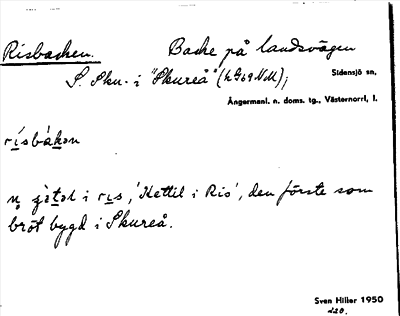 Risbacken. Backe på landsvägen
S. Sku. i "Skureå" (h. G69 N.M);
Sidensjö sn,
Ångermanl. n. doms. tg., Västernorrl, l.
rísbákən
i ris, 'Kettil i Ris', den förste som
bröt bygd i Skureå.
Sven Hiller 1950